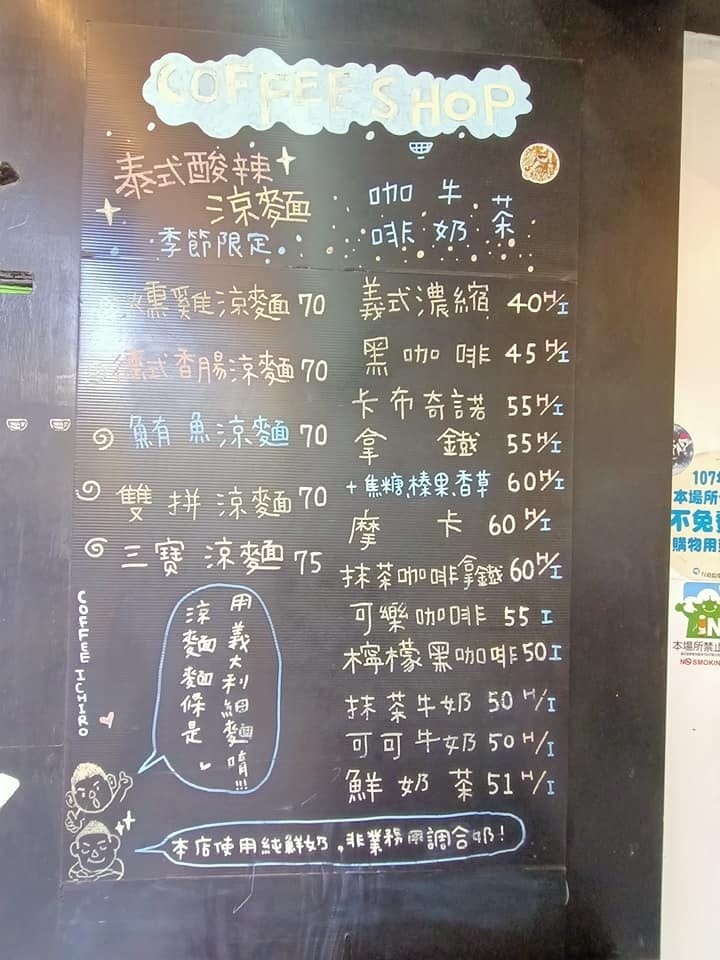 COFFEE SHOP
泰式酸辣
涼麵
季節限定
咖啡 牛奶 茶
燻雞涼麵 70
德式香腸涼麵 70
鮪魚涼麵 70
雙拼涼麵 70
三寶涼麵 75
義式濃縮 40 H/I
黑咖啡 45 H/I
卡布奇諾 55 H/I
拿鐵 55 H/I
+焦糖、榛果、香草 60 H/I
摩卡 60 H/I
抹茶咖啡拿鐵 60 H/I
可樂咖啡 55 I
檸檬黑咖啡 50 I
抹茶牛奶 50 H/I
可可牛奶 50 H/I
鮮奶茶 51 H/I
COFFEE ICHIRO
涼麵麵條是
用義大利細麵唷!!!
本店使用純鮮奶,非業務用調合奶!
107年
本場所
不免費
購物用
本場所禁止
NO SMOKIN